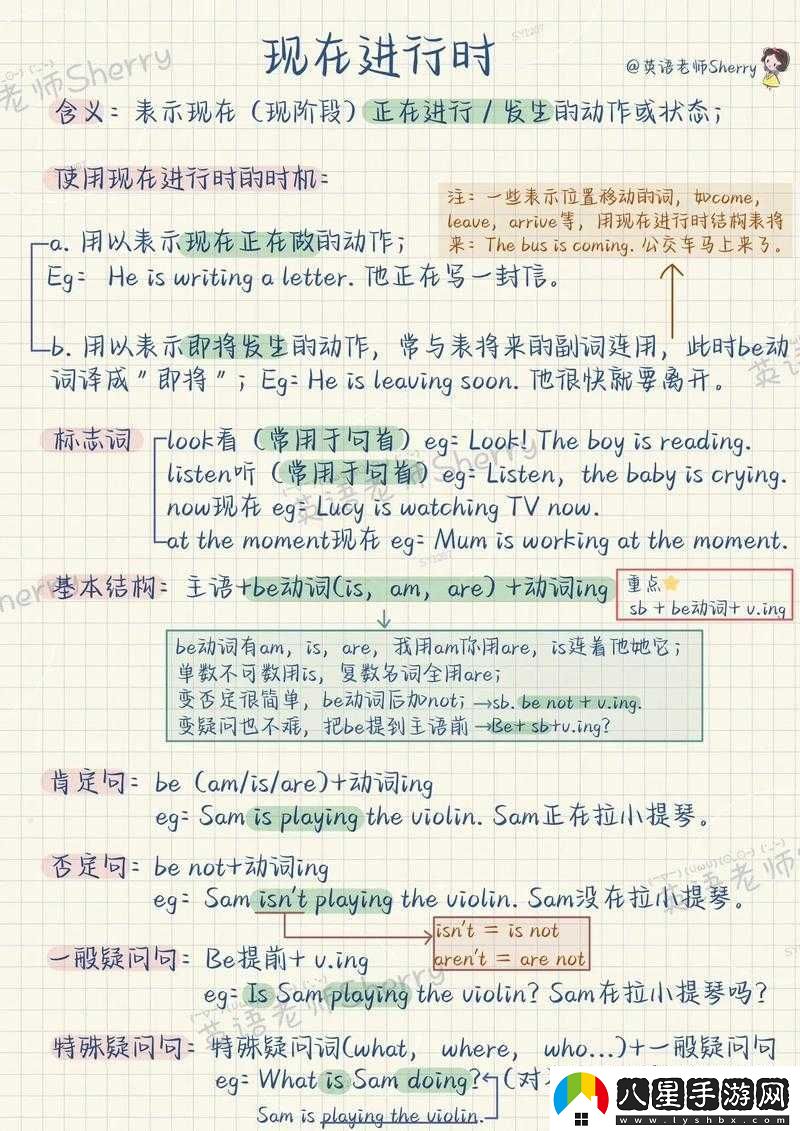 现在进行时
@英语老师Sherry
含义：表示现在（现阶段）正在进行/发生的动作或状态；
使用现在进行时的时机：
注：一些表示位置移动的词，如come,
leave, arrive等，用现在进行时结构表将
来：The bus is coming. 公交车马上来了。
a. 用以表示现在正在做的动作；
Eg： He is writing a letter. 他正在写一封信。
b. 用以表示即将发生的动作，常与表将来的副词连用，此时be动
词译成"即将"；Eg：He is leaving soon. 他很快就要离开。
标志词
look看（常用于句首）eg：Look! The boy is reading.
listen听（常用于句首）eg：Listen, the baby is crying.
now现在 eg：Lucy is watching TV now.
at the moment现在 eg：Mum is working at the moment.
基本结构：主语+be动词(is, am, are)+动词ing
重点
sb + be动词+ v.ing
be动词有am, is, are, 我用am你用are, is连着他她它；
单数不可数用is, 复数名词全用are；
变否定很简单，be动词后加not；→sb. be not + v.ing.
变疑问也不难，把be提到主语前→Be+ sb+v.ing?
肯定句：be (am/is/are)+动词ing
eg：Sam is playing the violin. Sam正在拉小提琴。
否定句：be not+动词ing
eg：Sam isn't playing the violin. Sam没在拉小提琴。
isn't = is not
aren't = are not
一般疑问句：Be提前+ v.ing
eg：Is Sam playing the violin? Sam在拉小提琴吗？
特殊疑问句：特殊疑问词(what, where, who...)+一般疑问句
eg：What is Sam doing? (对
Sam is playing the violin.
八星手游网
www.lyshbx.com
英语老师Sherry